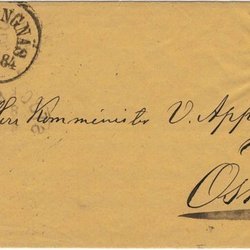 NGNÄS
84
Herr Komminister V. App
Oss